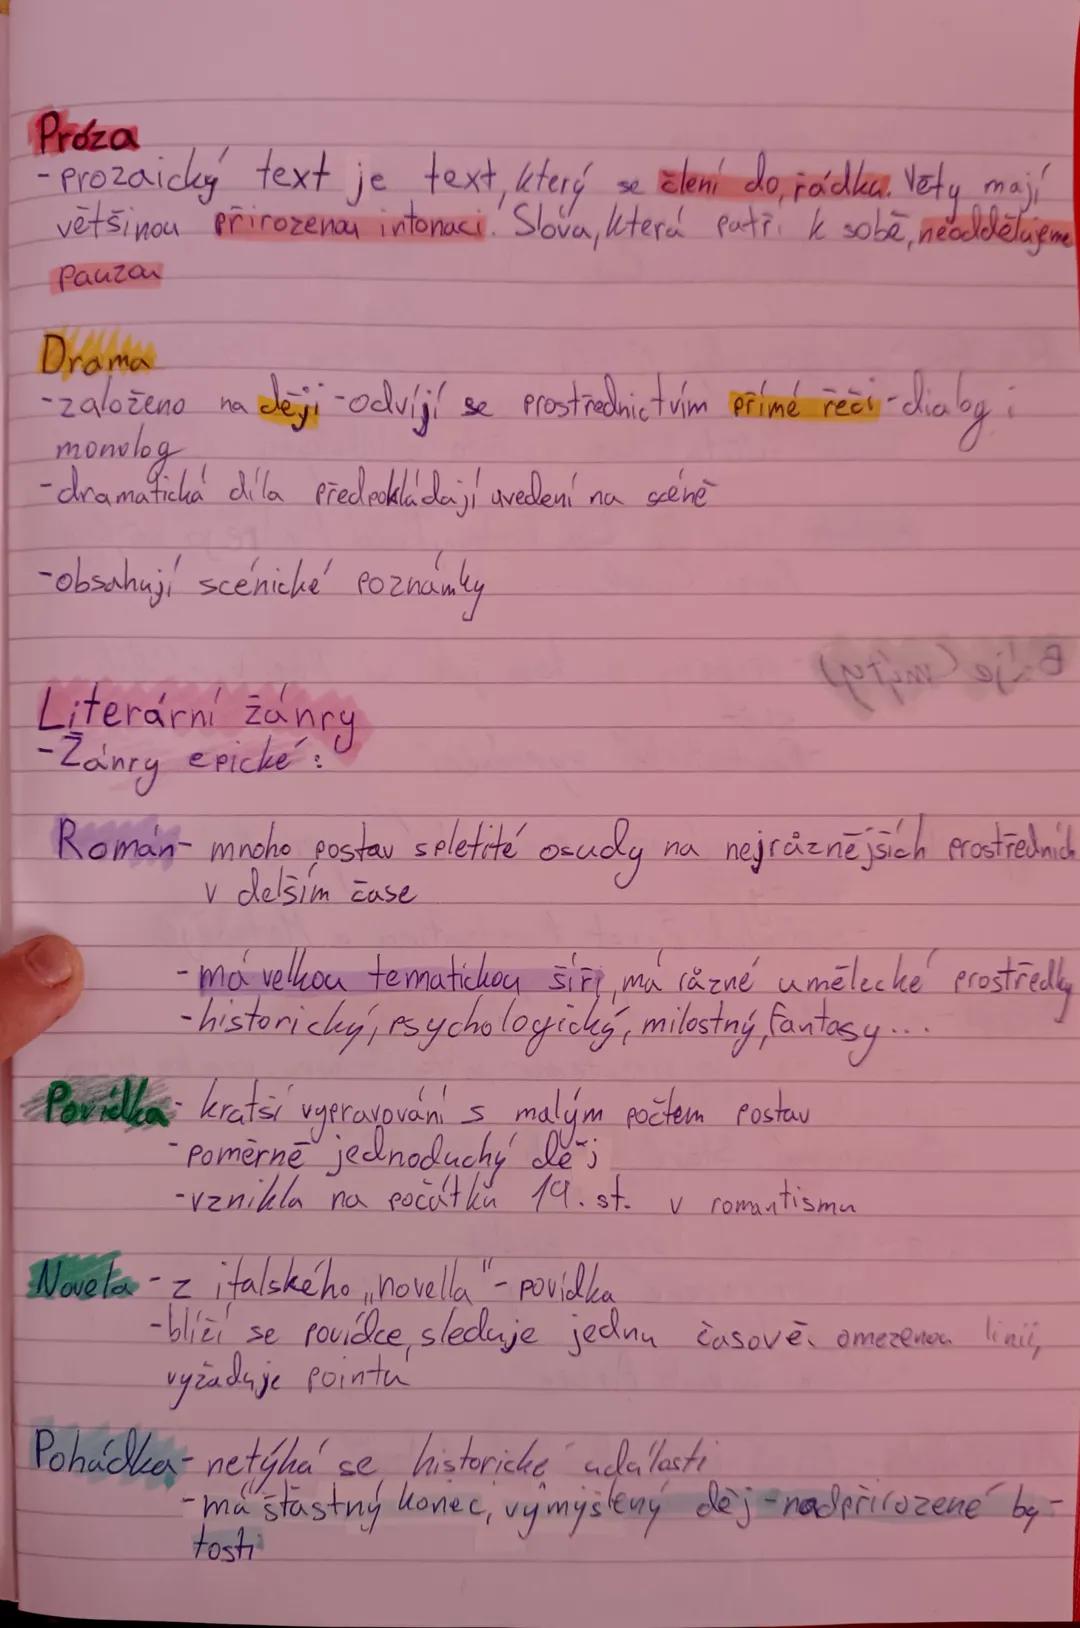 Próza
-prozaický text je text, který se člení do řádku. Věty mají
většinou přirozenou intonaci. Slova, která patří k sobě, neoddělujeme
pauzou
Drama
-založeno na ději -odvíjí se prostřednictvím přímé řeči -dialog i
monolog
-dramatická díla předpokládají uvedení na scéně
-obsahují scénické poznámky
Báje (mýty)
Literární žánry
-Žánry epické:
Román- mnoho postav spletité osudy na nejrůznějších prostředních
v delším čase
-má velkou tematickou šíři, má různé umělecké prostředky
-historický, psychologický, milostný, fantasy...
Povídka- kratší vypravování s malým počtem postav
-poměrně jednoduchý děj
-vznikla na počátku 19. st. v romantismu
Novela -z italského „novella"- povídka
-blíží se povídce, sleduje jednu časově omezenou linii,
vyžaduje pointu
Pohádka- netýká se historické události
-má šťastný konec, vymyšlený děj -nadpřirozené by-
tosti